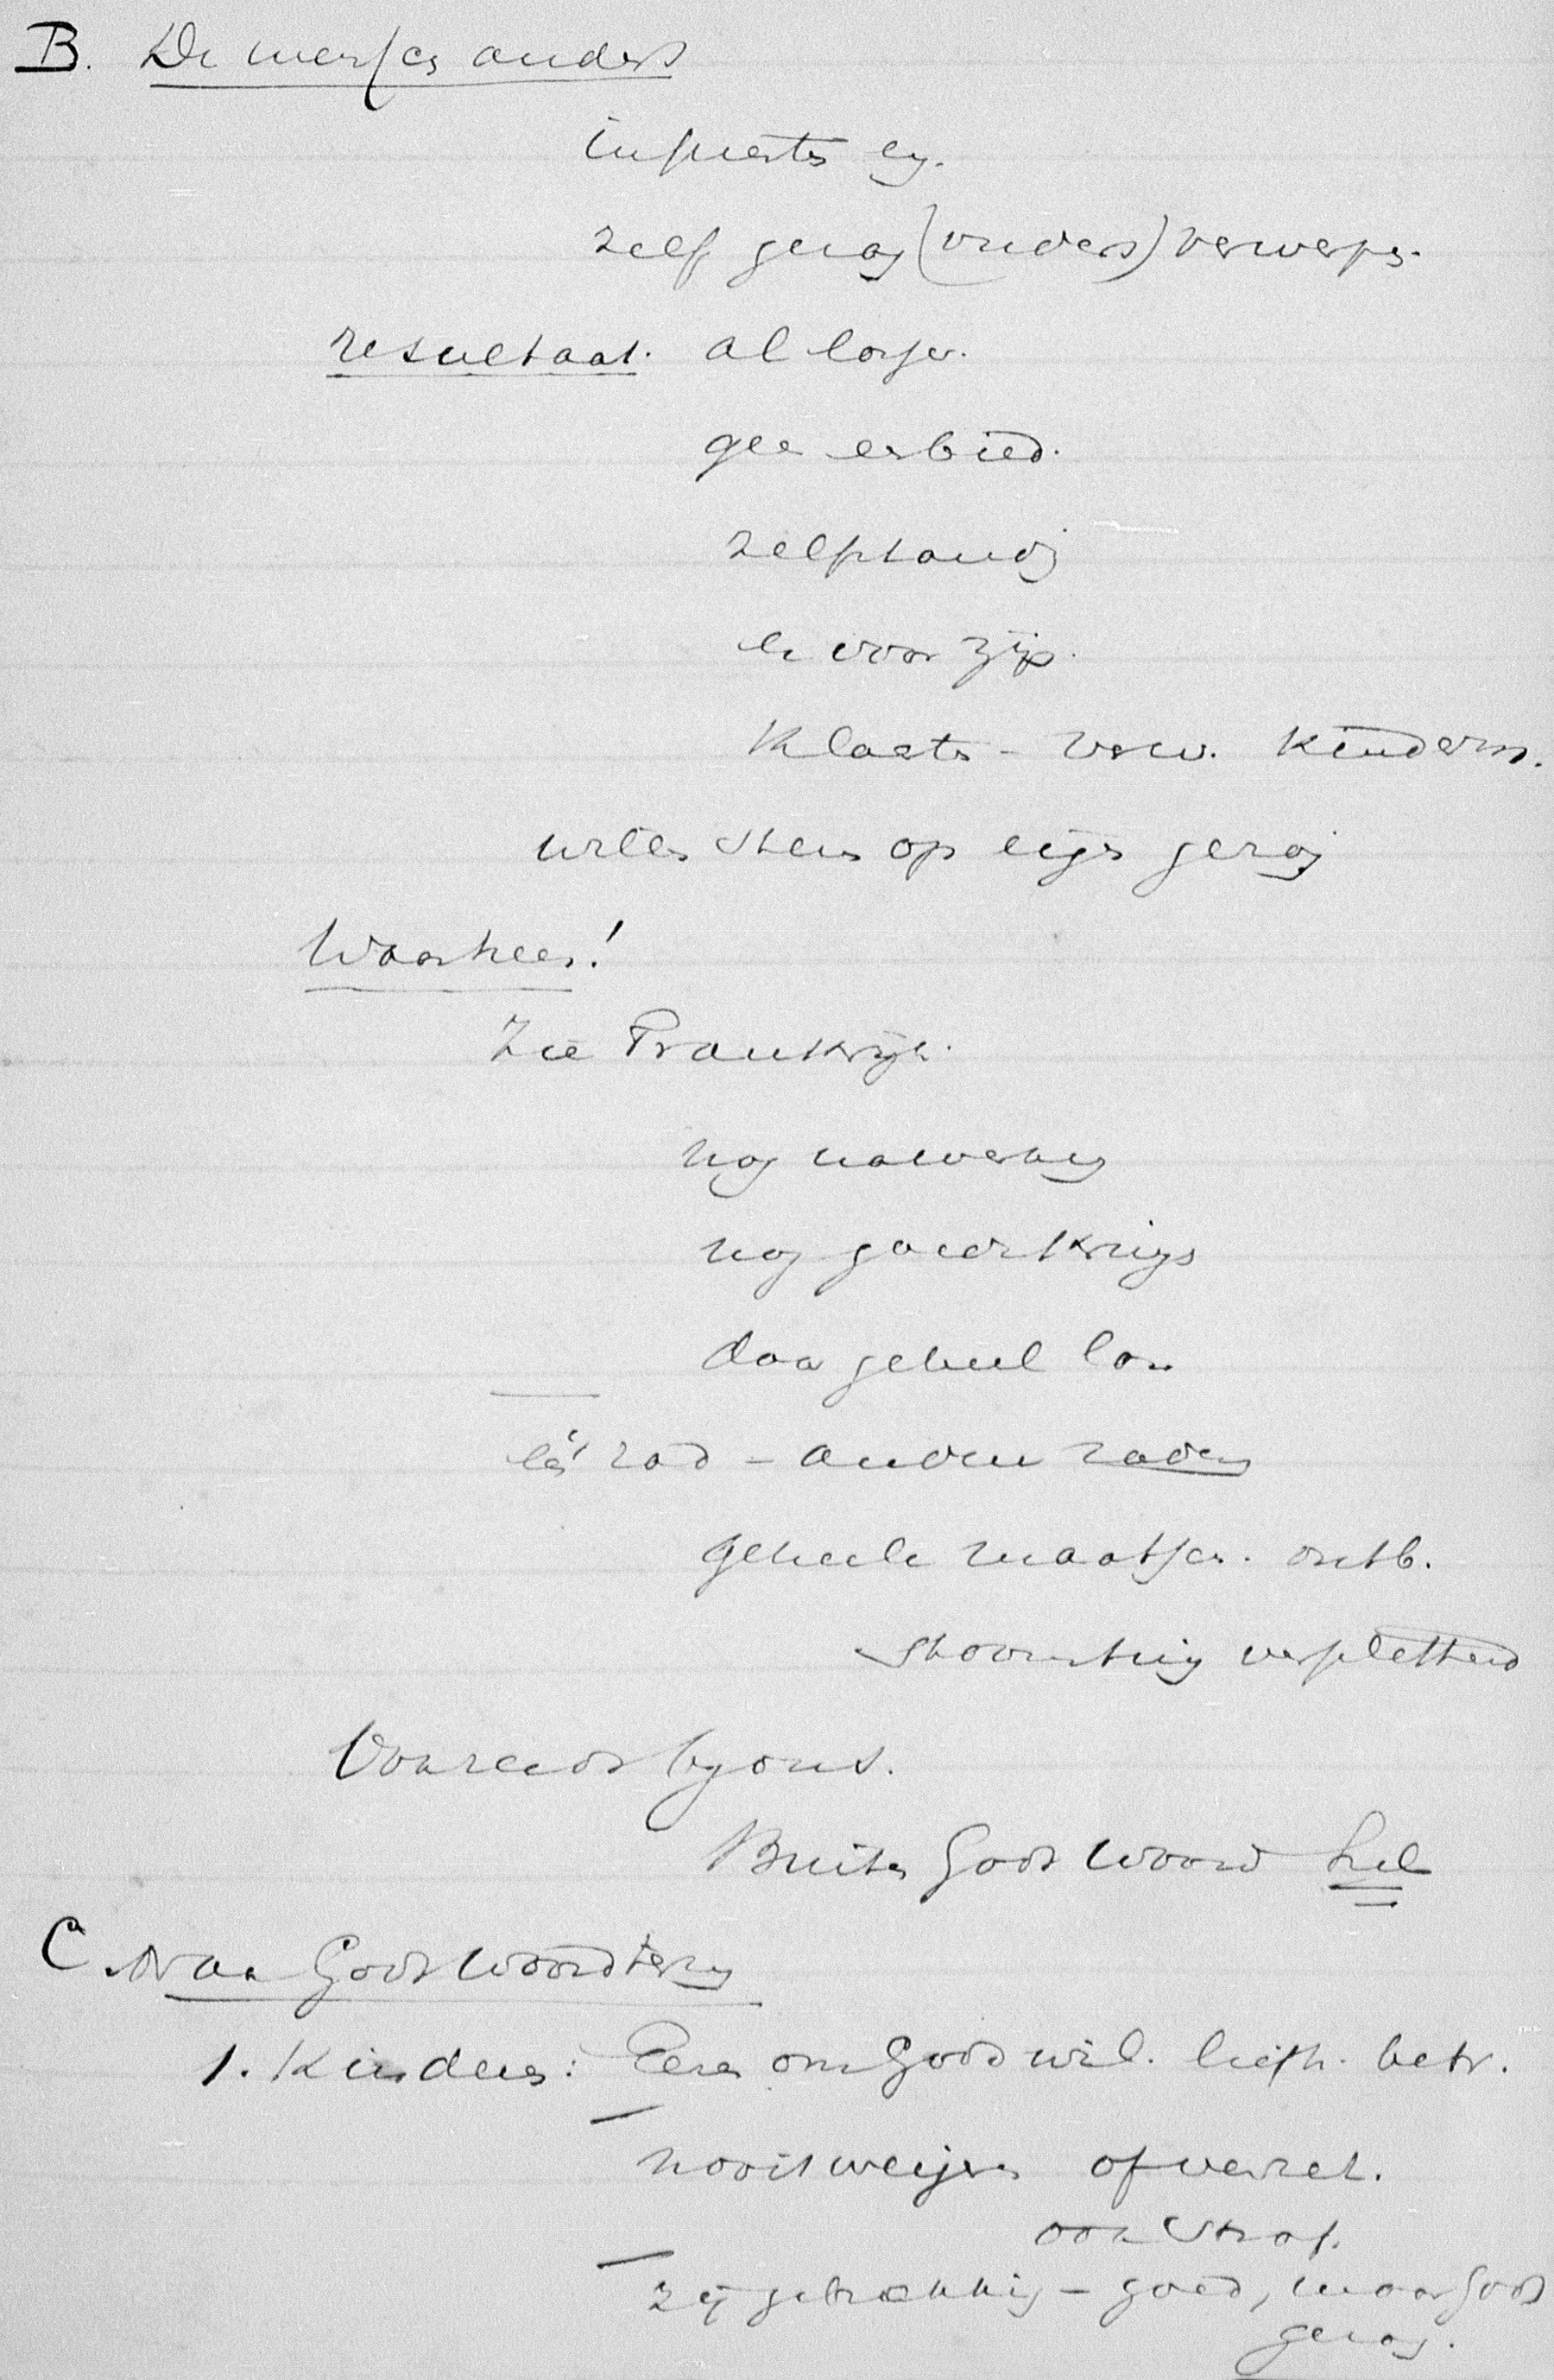 B. De menschen anders
inspuiten eig.
zelf gezag (ouders) verwerpen.
resultaat. al losser.
geen eerbied.
zelfstandig
elk voor zich.
Klaagt - verw. kinderen.
willen staan op eigen gezag
Waarheen!
Zie Frankrijk.
nog nawerking
nog goed krijgs
daar geheel los
één rad - andere raden
geheele maatsch. ontb.
stoomtuig verpletterd
Voorzeid bij ons.
Buiten Gods Woord hel
C. Naar Gods Woord terug
1. Kinderen: Eeren om Gods wil. liefh. betr.
nooit weigeren of verzet.
ook straf.
zij gebrekkig - goed, maar Gods
gezag.